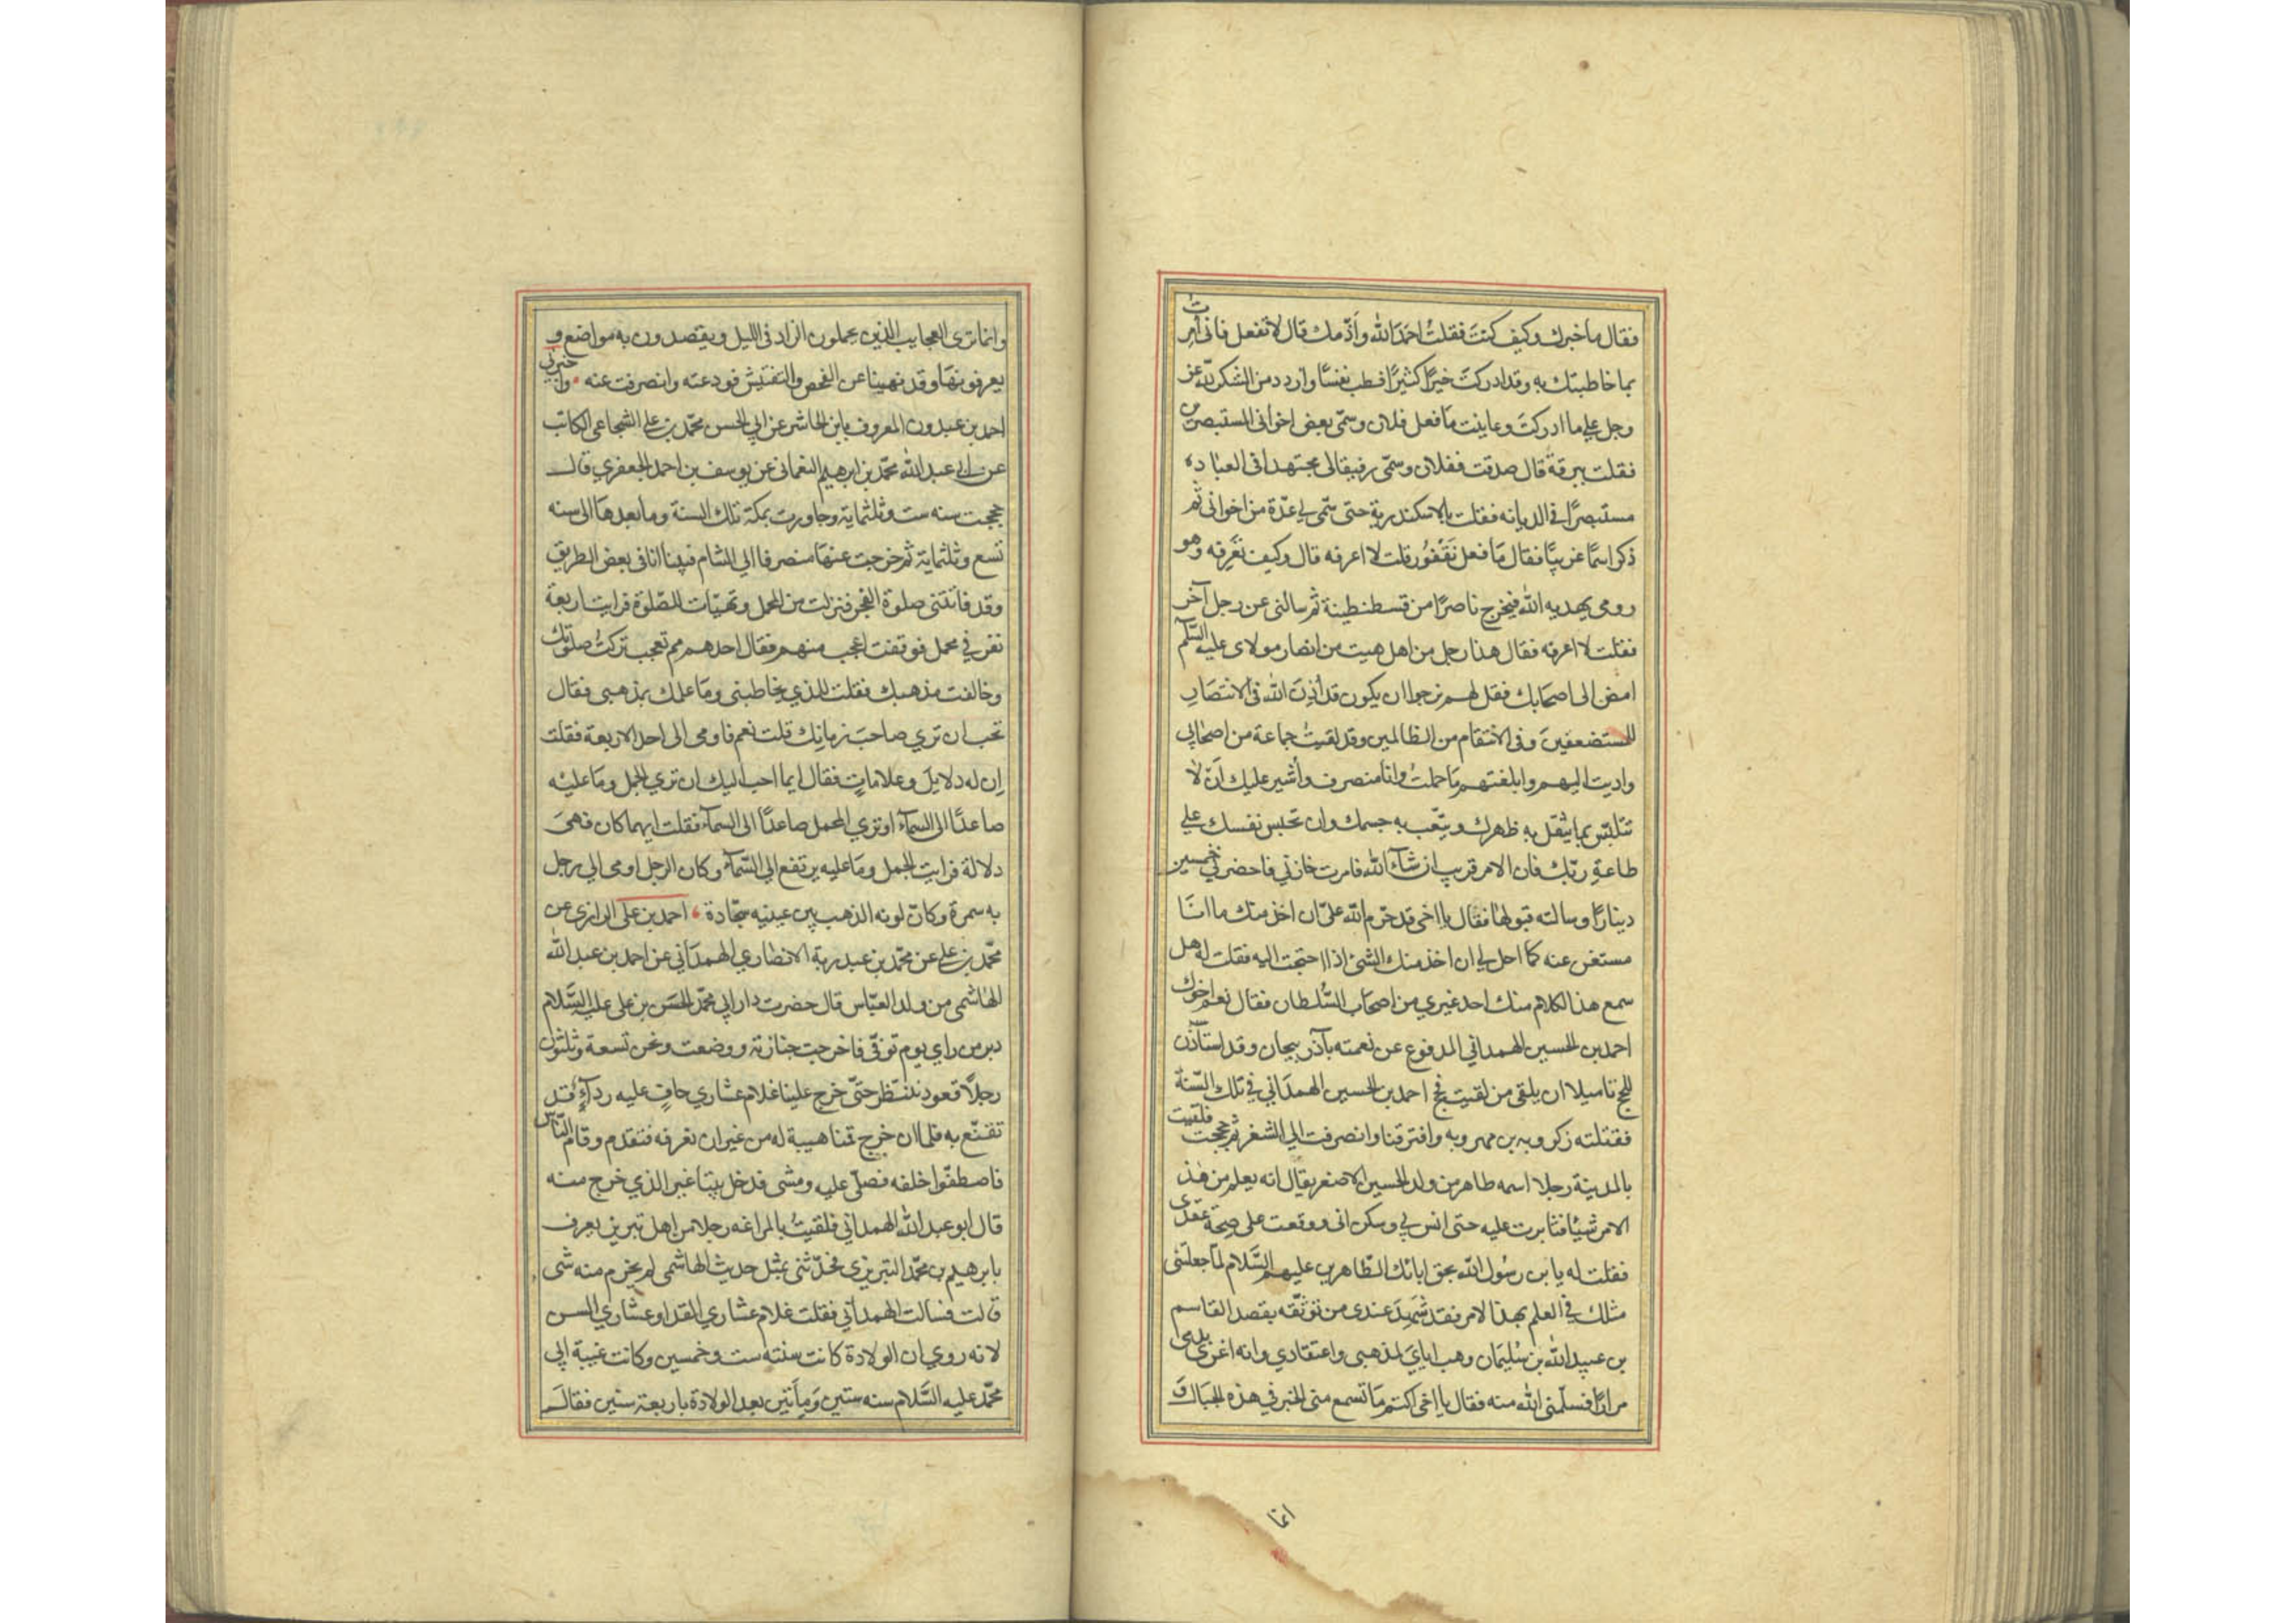 فقال ما خبرك وكيف كنت فقلتُ احمَدُ الله واَذّمك قال لا تفعل فانى امرت
بما خاطبتك به وقد ادركتَ خيرًا كثيرًا فطب نفسًا وازدد من الشكر لله عز
وجل على ما ادركتَ وعاينت مَا فعل فلان وسمّى بعض اخوانى المستبصرين
فقلت ببرقة قال صدقت ففلان وسمّى رفيقا لى مجتهدا فى العباده
مستبصرًا فى الديانه فقلت بالاسكندرية حتى سمّى لي عدّة من اخوانى ثم
ذكر اسمًا غريبًا فقال مَا فعل نَقْفُور قلت لا اعرفه قال وكيف تَعرِفه وهو
رومى يهديه الله فيخرج ناصرًا من قسطنطينة ثم سالنى عن رجل آخر
فقلت لا اعرفه فقال هذا رجل من اهل هيت من انصار مولاى عليه السّلم
امض الى اصحَابك فقل لهم نرجوا ان يكون قد أذِنَ الله فى الانتصَارِ
للمستضعفينَ وفى الانتقام من الظالمين وقد لقيتُ جماعة من اصحَابي
واديت اليهم وابلغتهم مَا حملتُ وانا منصرف واُشير عليك اَنْ لا
تتلبّس بما يثقل به ظهرك ويتّعب به جسمك وان تحبس نفسك على
طاعةِ ربّك فان الامر قريب ان شآء الله فامرت خازني فاحضر لي خمسين
دينارًا وسالته قبولها فقال يا اخى قد حرّم الله علىّ ان اخذ منك ما انَا
مستغن عنه كما احل لي ان اخذ منك الشئ اذا احتجت اليه فقلت له هل
سمع هذا الكلام منك احد غيري من اصحَاب السُّلطان فقال نعم اخوك
احمد بن الحسين الهمداني المدفوع عن نعمته بآذربيجان وقد استأذن
للحج تاميلا ان يلقى من لقيت فحج احمد بن الحسين الهمدَاني في تلك السّنة
فقتلته زكرويه بن مهرويه وافترقنا وانصرفت الي الثغر ثم حججت فلقيت
بالمدينة رجلا اسمه طاهر من ولد الحسين الاصغر يقال انه يعلم من هذ
الامر شيئا فثابرت عليه حتى انس لي وسكن الى ووقعت على صحة عقدى
فقلت له يا بن رسُول الله بحق ابائك الطّاهرين عليهم السَّلام لمّا جعلتنى
مثلك في العلم بهذا الامر فقد شَهِدَ عندى من توثّقه بقصد القاسم
بن عبيد الله بن سُليمَان وهب ايايَ لمذهبى واعتقادي وانه اغرى بدمى
مرارًا فسلّمنى الله منه فقال يا اخى اكتم مَا تسمع منى الخبر في هذه الجبَال وَ
انما
وانما ترى العجايب الذين يحملون الزاد فى الليل ويقصدون به مواضع و
يعرفونهَا وقد نهينا عن الفحص والتفتيش فودعته وانصرفت عنه واخبرنى
احمد بن عبدون المعروف بابن الحاشر عن ابي الحسن محمّد بن على الشجاعى الكاتب
عن ابي عبد الله محمّد بن ابرهيم النعمانى عن يوسف بن احمد الجعفري قال
حججت سنه ست وثلثماية وجاورت بمكة تلك السنة وما بعدهَا الى سنه
تسع وثلثماية ثم خرجت عنهَا منصرفا الي الشام فبينا انا فى بعض الطريق
وقد فاتتنى صلوة الفجر فنزلت من المحمل وتهيّات للصّلوة فرايت اربعة
نفر في محمل فوقفت اعجب منهم فقال احدهم مم تعجب تركتَ صلوتك
وخالفت مذهبك فقلت للذي يخاطبنى ومَا علمك بمذهبى فقال
تحب ان تري صاحبَ زمانِك قلت نعم فاومى الى احد الاربعة فقلت
اِن له دلايلَ وعلاماتٍ فقال ايما احب اليك ان تري الجمل ومَا عليْه
صاعدًا الى السماءِ او تري المحمل صاعدًا الى السمآء فقلت ايهما كان فهىَ
دلالة فرايت الجمل ومَا عليه يرتفع الي السّمآء وكان الرجل اومى الي رجل
به سمرة وكانّ لونه الذهب بين عينيه سجّادة احمد بن على الرازى عن
محّمد بن على عن محّمد بن عبد ربة الانصاري الهمدَاني عن احمد بن عبد الله
الهاشمى من ولد العبّاس قال حضرت دار ابي محمّد الحسَن بن على عليه السَّلام
بسر من راي يوم توفّى فاخرجت جنازته ووضعت ونحن تسعة وثلثون
رجلًا قعود ننتظر حتّى خرج علينا غلام عشاري حافٍ عليه ردآءٍ قد
تقنّع به فلما ان خرج قمنا هيبة له من غير ان نعرفه فتقدم وقام النّاس
فاصطفّوا خلفه فصلّى عليه ومشى فدخل بيتا غير الذي خرج منه
قال ابو عبد الله الهمداني فلقيتُ بالمراغه رجلا من اهل تبريز يعرف
بابرهيم بن محمّد التبريزى فحدّثنى بمثل حديث الهاشمى لم يخرم منه شى
قالت فسالت الهمدَاني فقلت غلام عشاري القد او عشاري السن
لانه روي ان الولادة كانت سنته ست وخمسين وكانت غيبة ابى
محمّد عليه السَّلام سنه ستين وَمِأتين بعد الولادة باربعة سنين فقال